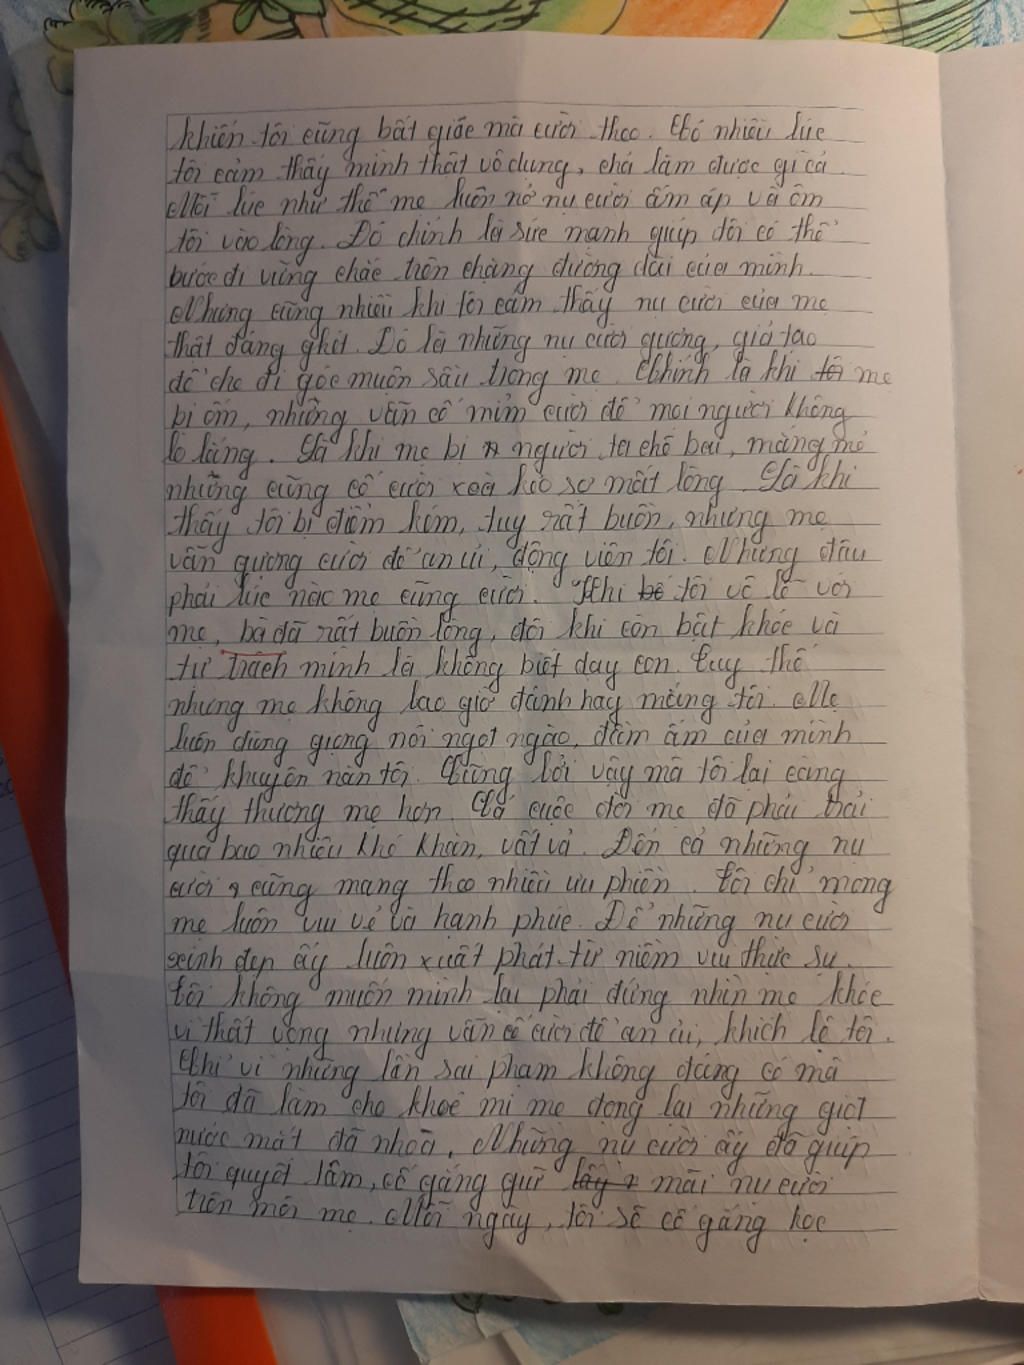 khiến tôi cũng bất giác mà cười theo. Có nhiều lúc
tôi cảm thấy mình thật vô dụng, chả làm được gì cả.
Mỗi lúc như thế mẹ luôn nở nụ cười ấm áp và ôm
tôi vào lòng. Đó chính là sức mạnh giúp tôi có thể
bước đi vững chắc trên chặng đường dài của mình.
Nhưng cũng nhiều khi tôi cảm thấy nụ cười của mẹ
thật đáng ghét. Đó là những nụ cười gượng, giả tạo
để che đi góc muộn sầu trong mẹ. Chính là khi tôi mẹ
bị ốm, nhưng vẫn cố mỉm cười để mọi người không
lo lắng. Là khi mẹ bị người ta chê bai, mắng mỏ
nhưng cũng cố cười xoà kẻo sợ mất lòng. Là khi
thấy tôi bị điểm kém, tuy rất buồn, nhưng mẹ
vẫn gượng cười để an ủi, động viên tôi. Nhưng đâu
phải lúc nào mẹ cũng cười. Khi bé tôi vô lễ với
mẹ, bà đã rất buồn lòng, đôi khi còn bật khóc và
tự trách mình là không biết dạy con. Tuy thế
nhưng mẹ không bao giờ đánh hay mắng tôi. Mẹ
luôn dùng giọng nói ngọt ngào, đằm ấm của mình
để khuyên răn tôi. Cũng bởi vậy mà tôi lại càng
thấy thương mẹ hơn. Cả cuộc đời mẹ đã phải trải
qua bao nhiêu khó khăn, vất vả. Đến cả những nụ
cười cũng mang theo nhiều ưu phiền. Tôi chỉ mong
mẹ luôn vui vẻ và hạnh phúc. Để những nụ cười
xinh đẹp ấy luôn xuất phát từ niềm vui thực sự.
Tôi không muốn mình lại phải đứng nhìn mẹ khóc
vì thất vọng nhưng vẫn cố cười để an ủi, khích lệ tôi.
Chỉ vì những lần sai phạm không đáng có mà
tôi đã làm cho khoé mi mẹ đọng lại những giọt
nước mắt đã nhoà. Những nụ cười ấy đã giúp
tôi quyết tâm, cố gắng giữ lấy mãi nụ cười
trên môi mẹ. Mỗi ngày, tôi sẽ cố gắng học